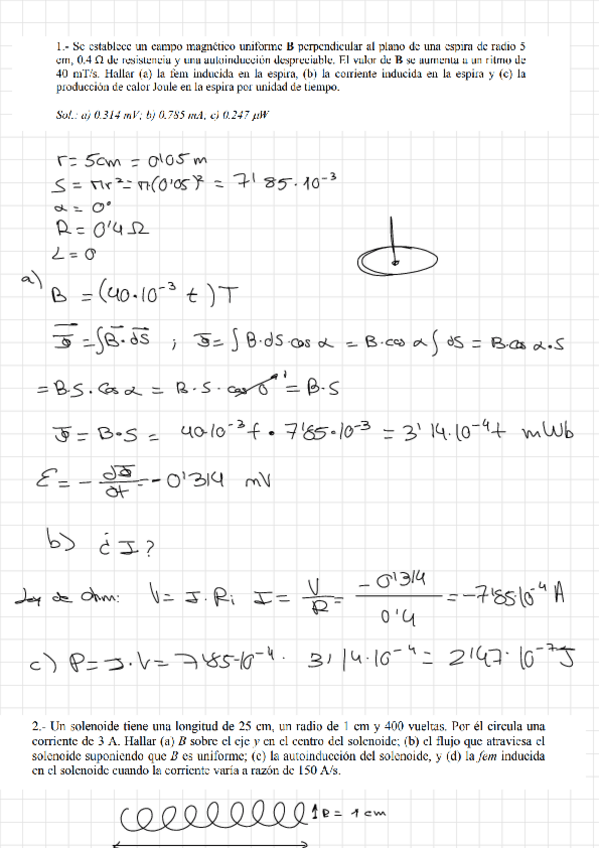 1.- Se establece un campo magnético uniforme B perpendicular al plano de una espira de radio 5
cm, 0.4 Ω de resistencia y una autoinducción despreciable. El valor de B se aumenta a un ritmo de
40 mT/s. Hallar (a) la fem inducida en la espira, (b) la corriente inducida en la espira y (c) la
producción de calor Joule en la espira por unidad de tiempo.
Sol.: a) 0.314 mV; b) 0.785 mA, c) 0.247 μW
r = 5cm = 0'05 m
S = πr² = π(0'05)² = 7'85·10⁻³
α = 0°
R = 0'4 Ω
L = 0
a)
B = (40·10⁻³ t) T
Φ = ∫B·dS ; Φ = ∫B·dS·cos α = B·cos α ∫dS = B·cos α·S
= B·S·cos α = B·S·cos 0° = B·S
Φ = B·S = 40·10⁻³t · 7'85·10⁻³ = 3'14·10⁻⁴t mWb
ε = - dΦ/dt = -0'314 mV
b) ¿I?
Ley de Ohm: V = I·R; I = V/R = -0'314/0'4 = -7'85·10⁻⁴ A
c) P = I·V = 7'85·10⁻⁴ · 3'14·10⁻⁴ = 2'47·10⁻⁷ J
2.- Un solenoide tiene una longitud de 25 cm, un radio de 1 cm y 400 vueltas. Por él circula una
corriente de 3 A. Hallar (a) B sobre el eje y en el centro del solenoide; (b) el flujo que atraviesa el
solenoide suponiendo que B es uniforme; (c) la autoinducción del solenoide, y (d) la fem inducida
en el solenoide cuando la corriente varía a razón de 150 A/s.
R = 1 cm